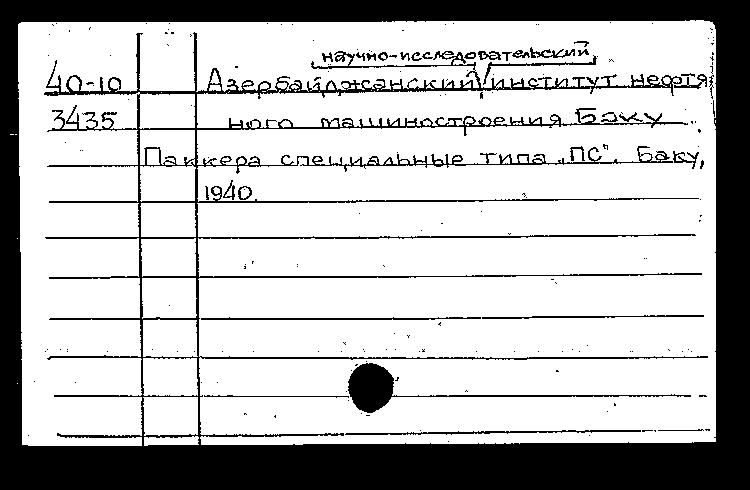 научно-исследовательский
40-10 Азербайджанский институт нефтя
3435 ного машиностроения Баку
Паккера специальные типа „ПС". Баку,
1940.